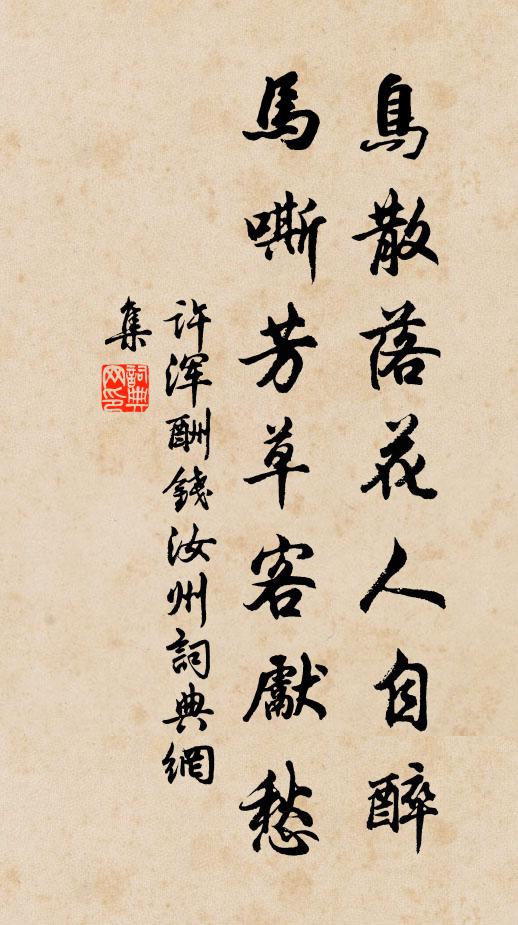 鳥散落花人自醉
馬嘶芳草客獻愁
许渾酬錢汝州詞典網
集
詞典
网印